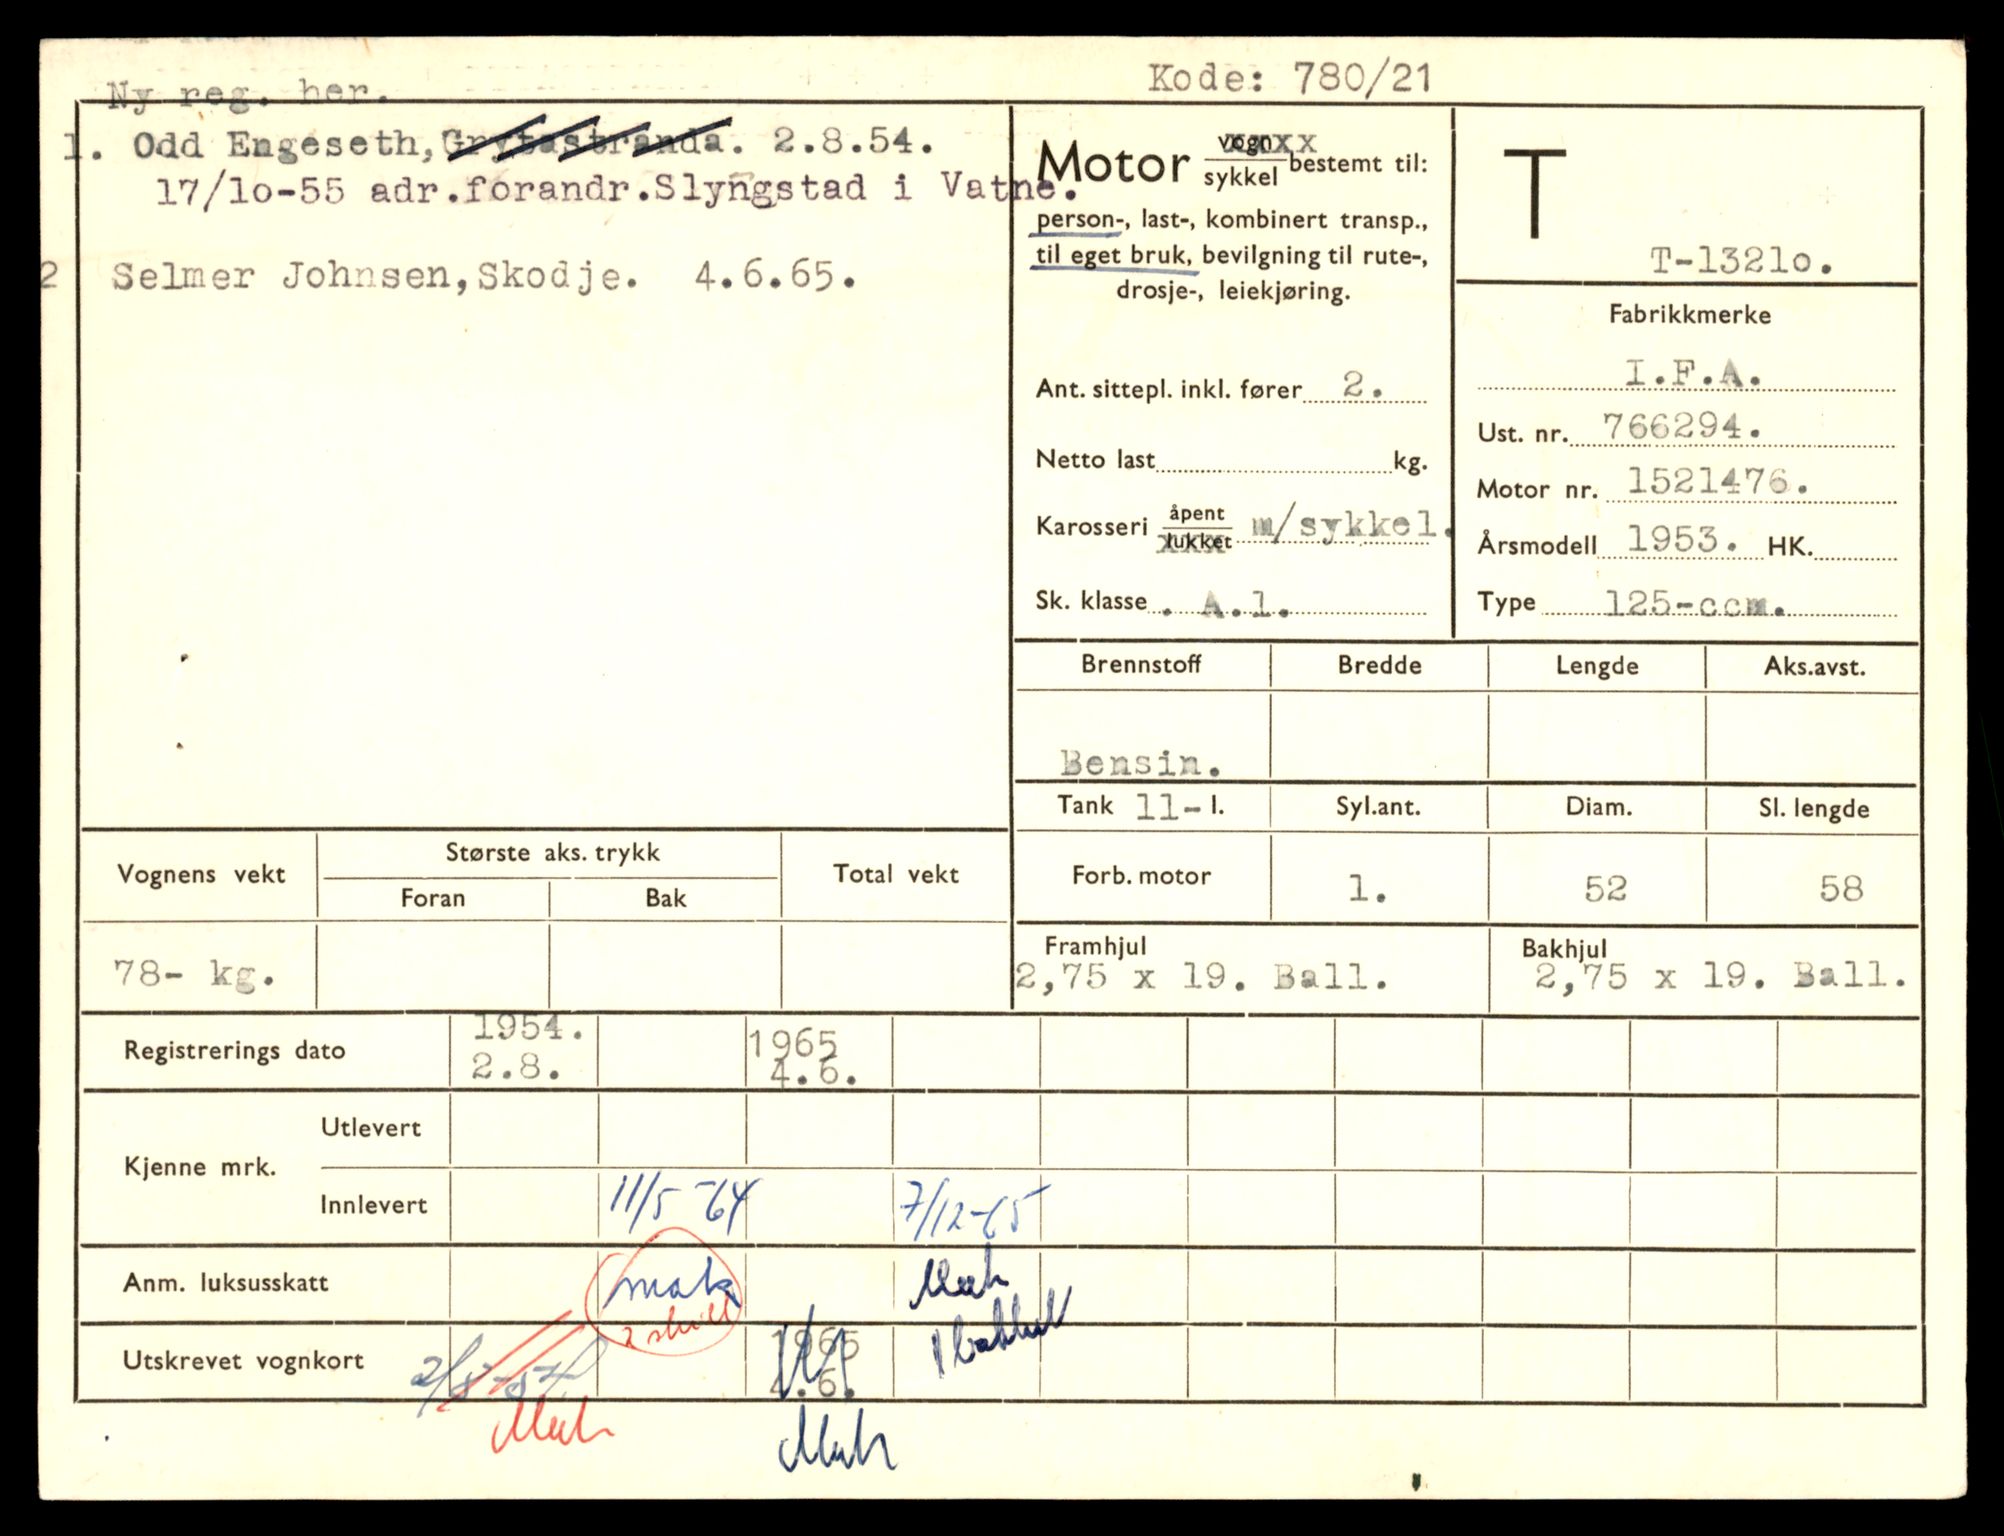 Kode: 780/21
Ny reg. her.
1. Odd Engeseth, Grytastranda. 2.8.54.
17/1o-55 adr.forandr.Slyngstad i Vatne.
2 Selmer Johnsen, Skodje. 4.6.65.
Motor vogn/sykkel bestemt til:
person-, last-, kombinert transp.,
til eget bruk, bevilgning til rute-,
drosje-, leiekjøring.
Ant. sittepl. inkl. fører 2.
Netto last kg.
Karosseri åpent/lukket m/sykkel.
Sk. klasse . A.1.
T
T-1321o.
Fabrikkmerke
I.F.A.
Ust. nr. 766294.
Motor nr. 1521476.
Årsmodell 1953. HK.
Type 125-ccm.
Brennstoff Bredde Lengde Aks.avst.
Bensin.
Tank 11- l. Syl.ant. Diam. Sl. lengde
Forb. motor 1. 52 58
Framhjul Bakhjul
2,75 x 19. Ball. 2,75 x 19. Ball.
Vognens vekt Største aks. trykk Total vekt
Foran Bak
78- kg.
Registrerings dato 1954. 2.8. 1965 4.6.
Kjenne mrk. Utlevert
Innlevert 11/5-64 7/12-65
Anm. luksusskatt
Utskrevet vognkort 1965
4.6.